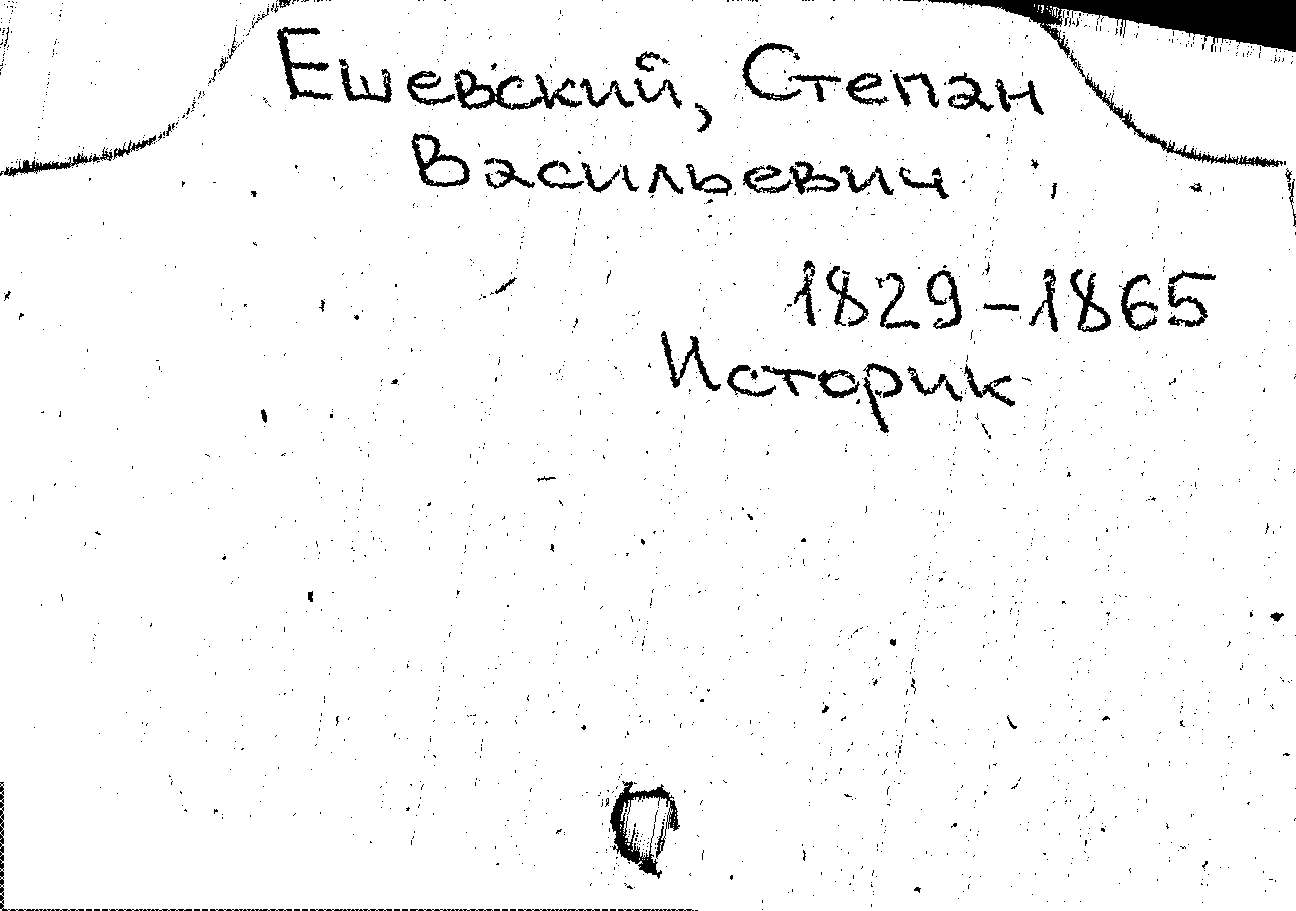 Ешевский, Степан
Васильевич
1829-1865
Историк